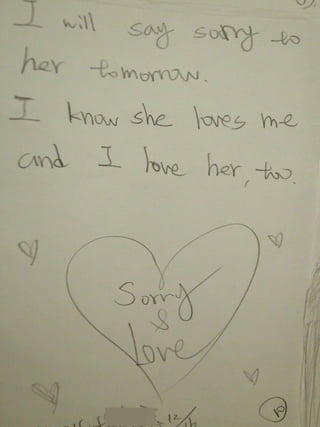 I will say sorry to
her tomorrow.
I know she loves me
and I love her, too.
Sorry
&
Love
12/